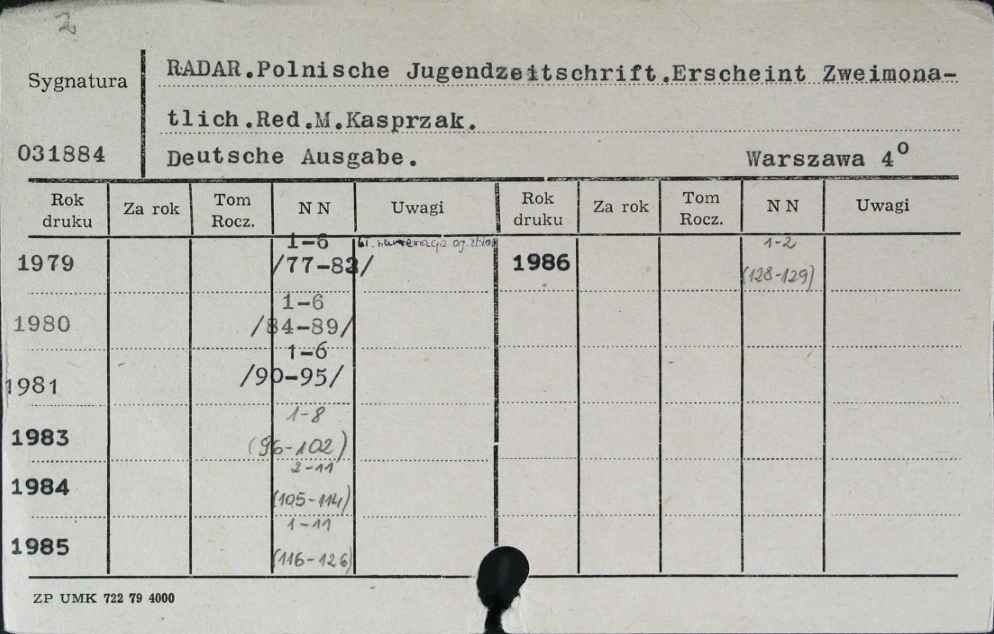 2
Sygnatura
031884
RADAR.Polnische Jugendzeitschrift.Erscheint Zweimona-
tlich.Red.M.Kasprzak.
Deutsche Ausgabe. Warszawa 4º
Rok druku Za rok Tom Rocz. NN Uwagi Rok druku Za rok Tom Rocz. NN Uwagi
1979 1-6 /77-83/ 1986 1-2 (128-129)
1980 1-6 /84-89/
1981 1-6 /90-95/
1983 1-8 (96-102)
1984 2-11 (105-114)
1985 1-11 (116-126)
ZP UMK 722 79 4000